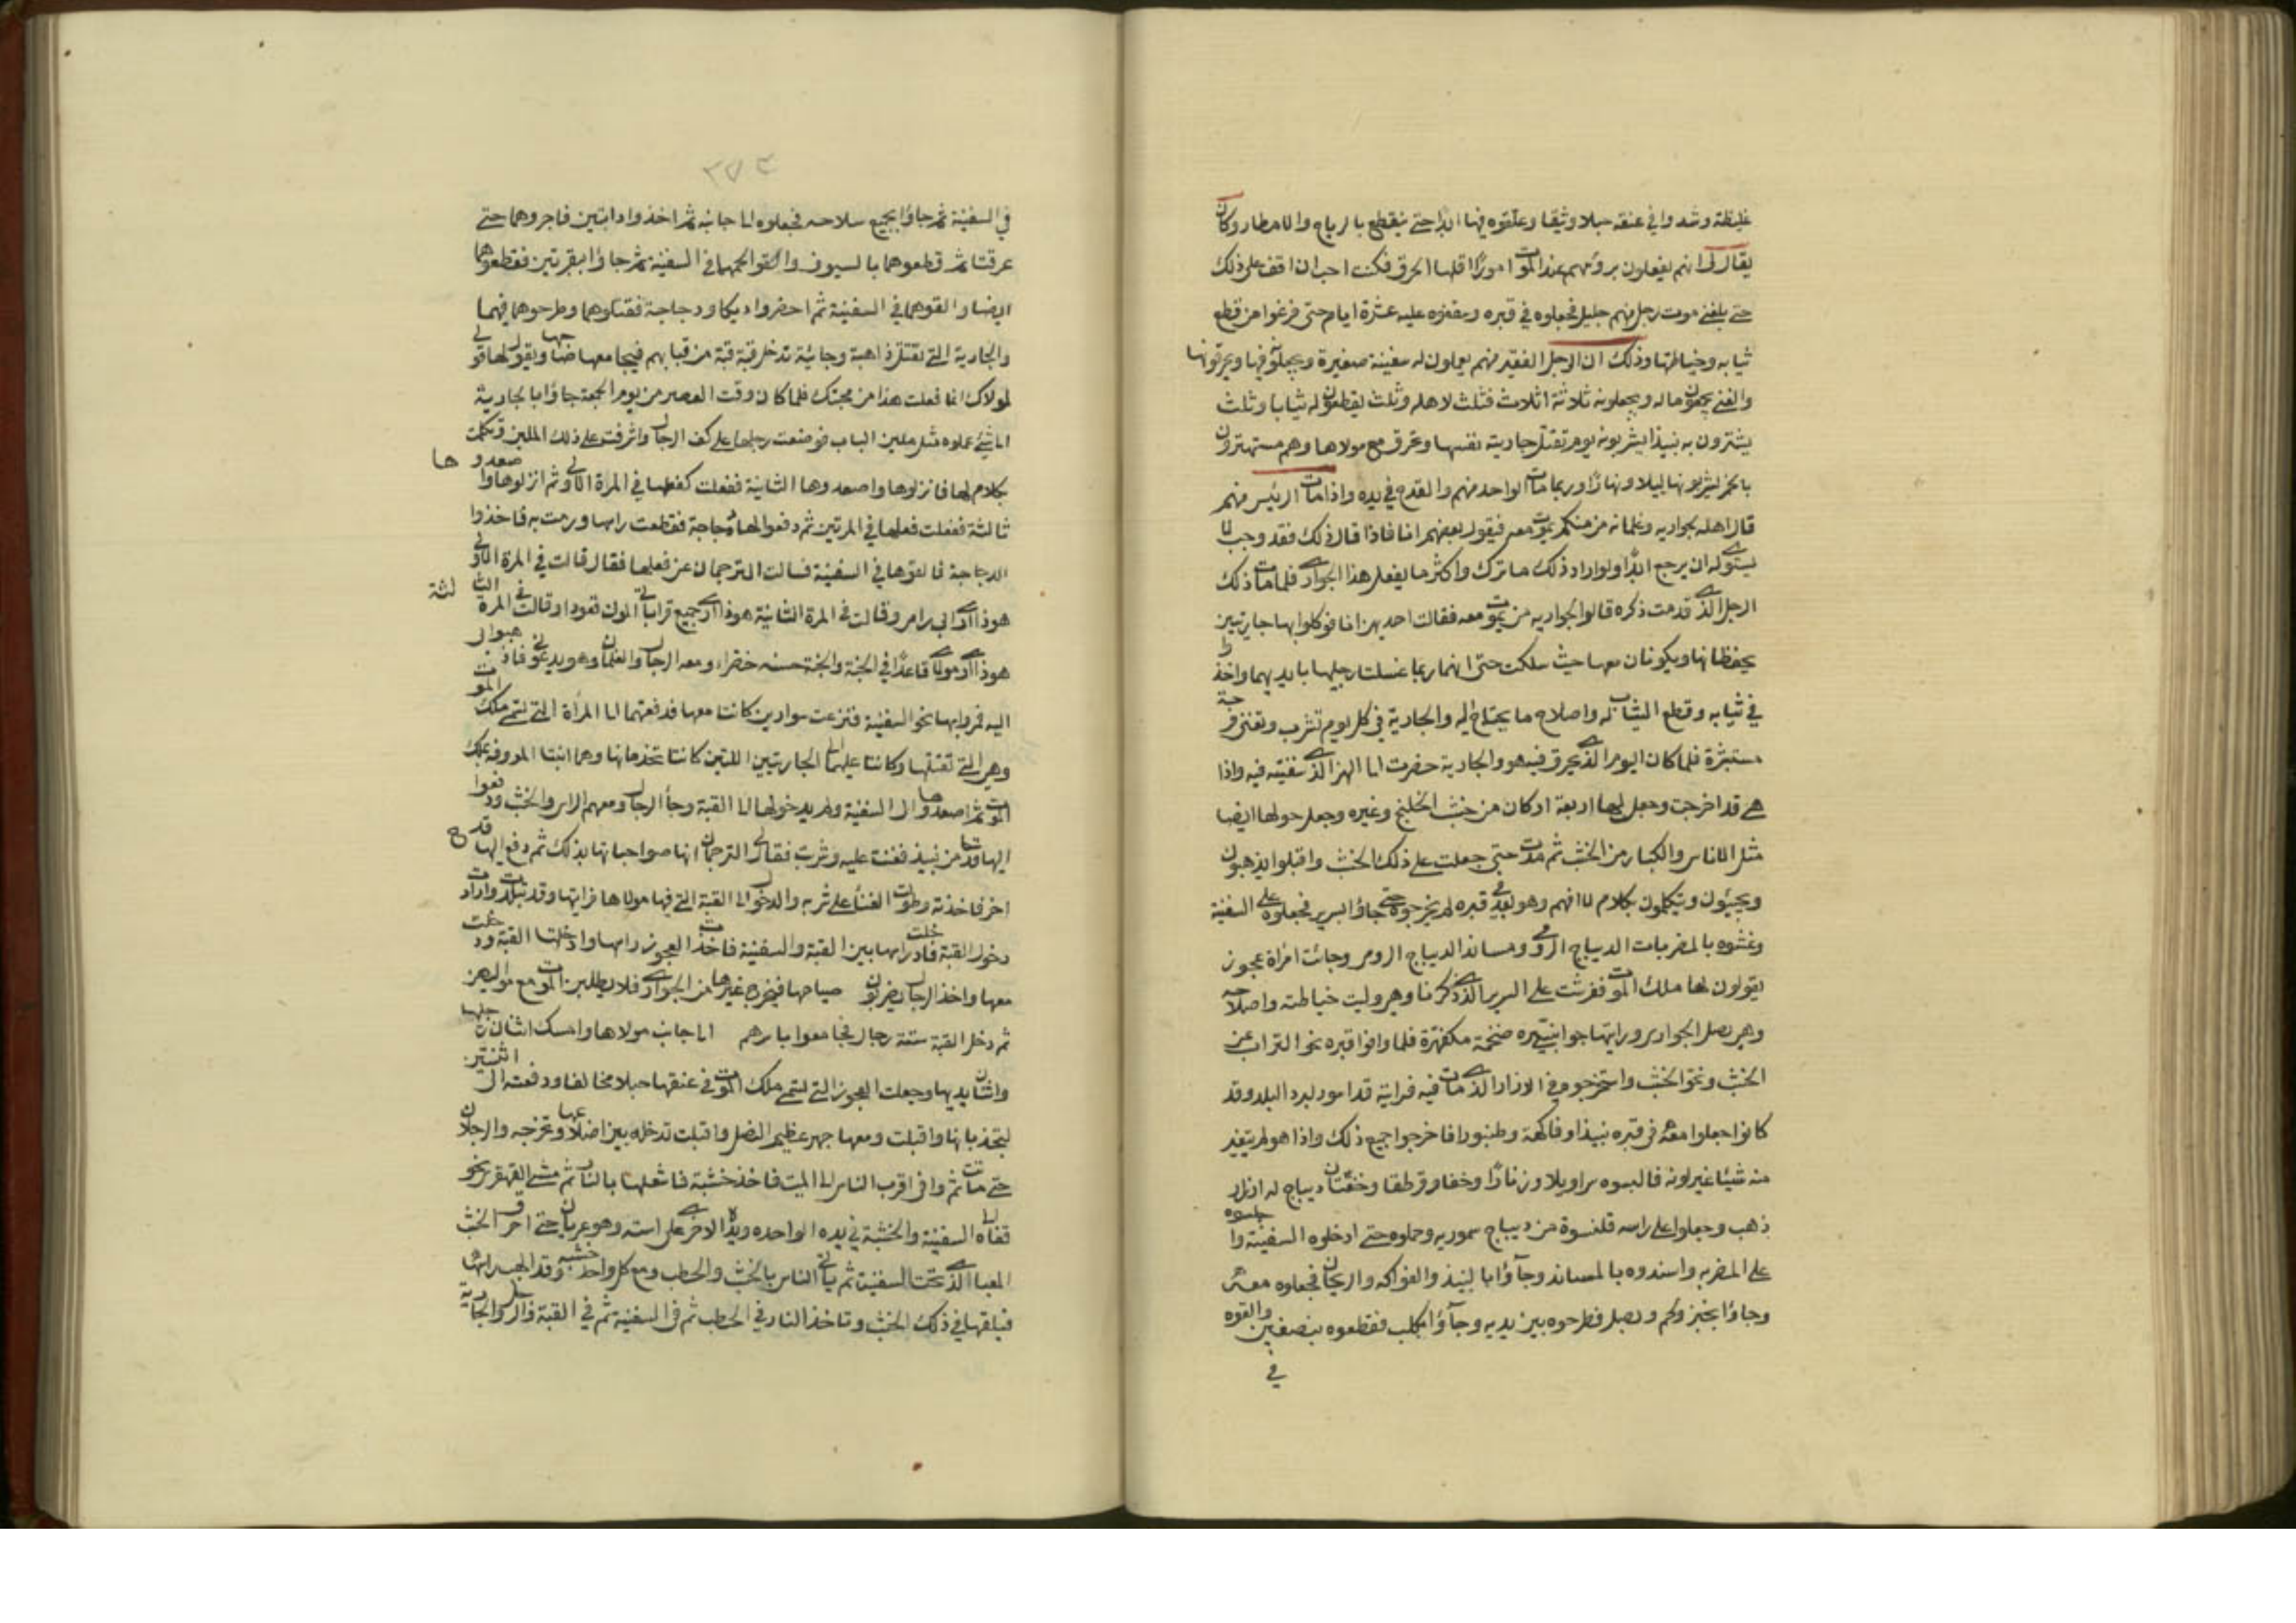 غليظة وشدوا في عنقه حبلا وثيقا وعلقوه فيها ابدًا حتى ينقطع بالرياح والامطار وكان
يقال لي انهم يفعلون برؤسهم عند الموت امورًا اقلها الحرق فكنت احب ان اقف على ذلك
حتى بلغني موت رجل منهم جليل فجعلوه في قبره وسقفوه عليه عشرة ايام حتى فرغوا من قطع
ثيابه وخياطتها وذلك ان الرجل الفقير منهم يعملون له سفينة صغيرة ويجعلونه فيها ويحرقونها
والغني يجمعون ماله ويجعلونه ثلاثة اثلاث فثلث لاهله وثلث يقطعون له ثيابا وثلث
يشترون به نبيذا يشربونه يوم تقتل جاريته نفسها وتحرق مع مولاها وهم مستهترون
بالخمر يشربونها ليلا ونهارًا وربما مات الواحد منهم والقدح في يده واذا مات الرئيس منهم
قال اهله لجواريه وغلمانه من منكم يموت معه فيقول بعضهم انا فاذا قال ذلك فقد وجب لا
يستوي له ان يرجع ابدًا ولو اراد ذلك ما ترك واكثر ما يفعل هذا الجواري فلما مات ذلك
الرجل الذي قدمت ذكره قالوا لجواريه من يموت معه فقالت احديهن انا فوكلوا بها جاريتين
يحفظانها ويكونان معها حيث سلكت حتى انهما ربما غسلتا رجليها بايديهما واخذوا
في ثيابه وقطع الثياب له واصلاح ما يحتاج اليه والجارية في كل يوم تشرب وتغني فرحة
مستبشرة فلما كان اليوم الذي يحرق فيه هو والجارية حضرت الى النهر الذي سفينته فيه واذا
هي قد اخرجت وجعل لها اربعة اركان من خشب الخلنج وغيره وجعل حولها ايضا
مثل الاناس والكبار من الخشب ثم مدت حتى جعلت على ذلك الخشب واقبلوا يذهبون
ويجيئون ويتكلمون بكلام لا افهم وهو بعد في قبره لم يخرجوه حتى جاؤا بسرير فجعلوه على السفينة
وغشوه بالمضربات الديباج الرومي ومساند الديباج الرومي وجائت امرأة عجوز
يقولون لها ملك الموت ففرشت على السرير الذي ذكرنا وهي وليت خياطته واصلاحه
وهي تقتل الجواري ورايتها جوانبيره ضخمة مكفهرة فلما وافوا قبره نحوا التراب عن
الخشب ونحوا الخشب واستخرجوه في الازار الذي مات فيه فرايته قد اسود لبرد البلد وقد
كانوا جعلوا معه في قبره نبيذا وفاكهة وطنبورا فاخرجوا جميع ذلك واذا هو لم يتغير
منه شيئا غير لونه فالبسوه سراويلا ورنانًا وخفا وقرطقا وخفتان ديباج له ازرار
ذهب وجعلوا على راسه قلنسوة من ديباج سموريه وحملوه حتى ادخلوه السفينة واجلسوه
على المضربه واسندوه بالمساند وجآؤا بالنبيذ والفواكه والريحان فجعلوه معه
وجاؤا بخبز ولحم وبصل فطرحوه بين يديه وجآؤا بكلب فقطعوه بنصفين والقوه
في
٢٧٤
في السفينة ثم جاؤا بجميع سلاحه فجعلوه الى جانبه ثم اخذوا دابتين فاجروهما حتى
عرقتا ثم قطعوهما بالسيوف والقوا لحمهما في السفينة ثم جاؤا ببقرتين فقطعوهما
ايضا والقوهما في السفينة ثم احضروا ديكا ودجاجة فقتلوهما وطرحوهما فيهما
والجارية التي تقتل ذاهبة وجائية تدخل قبة قبة من قبابهم فيجامعها صاحبها ويقول لها قولي
لمولاك انما فعلت هذا من محبتك فلما كان وقت العصر من يوم الجمعة جاؤا بالجارية
الى شيئ عملوه مثل ملبن الباب فوضعت رجلها على كف الرجال واشرفت على ذلك الملبن وتكلمت
بكلام لها فانزلوها واصعدوها الثانية ففعلت كفعلها في المرة الاولى ثم انزلوها واصعدوها
ثالثة ففعلت فعلها في المرتين ثم دفعوا لها دجاجة فقطعت راسها ورمت به فاخذوا
الدجاجة فالقوها في السفينة فسالت الترجمان عن فعلها فقال قالت في المرة الاولى
هوذا ارى ابي وامي وقالت في المرة الثانية هوذا ارى جميع قراباتي الموتى قعودا وقالت في المرة الثالثة
هوذا ارى مولاي قاعدًا في الجنة والجنة حسنه خضراء ومعه الرجال والغلمان وهو يدعوني فاذهبوا بي
اليه فمروا بها نحو السفينة فنزعت سوارين كانتا معها فدفعتهما الى المرأة التي تسمى ملك الموت
وهي التي تقتلها وكانتا عليها الجاريتين اللتين كانتا تخدمانها وهما ابنتا المعروفة بملك
الموت ثم اصعدوها الى السفينة ولم يدخلوها الى القبة وجأ الرجال ومعهم التراس والخشب ودفعوا
اليها قدحا من نبيذ فغنت عليه وشربته فقال لي الترجمان انها تودع صواحباتها بذلك ثم دفع اليها قدح
اخر فاخذته وطولت الغنأ على شربه والدخول الى القبة التي فيها مولاها فرايتها وقد تبلدت وارادت
دخول القبة فادخلت راسها بين القبة والسفينة فاخذت العجوز راسها وادخلتها القبة ودخلت
معها واخذ الرجال يضربون صياحها فيجزع غيرها من الجواري فلا يطلبن الموت مع مواليهن
ثم دخل القبة ستة رجال فجامعوا باسرهم الى جانب مولاها وامسك اثنان رجليها
واثنان يديها وجعلت العجوز التي تسمى ملك الموت في عنقها حبلا مخالفا ودفعته الى اثنين
ليجذبانها واقبلت ومعها خنجر عظيم النصل واقبلت تدخله بين اضلاعها وتخرجه والرجلان
حتى ماتت ثم وافى اقرب الناس الى الميت فاخذ خشبة فاشعلها بالنار ثم مشى القهقرى نحو
قفاه الى السفينة والخشبة في يده الواحده ويده الاخرى على استه وهو عريان حتى احرق الخشب
المعبا الذي تحت السفينة ثم ياتي الناس بالخشب والحطب ومع كل واحد خشبه وقد الهب راسها
فيلقيها في ذلك الخشب وتاخذ النار في الحطب ثم في السفينة ثم في القبة والرجل والجارية